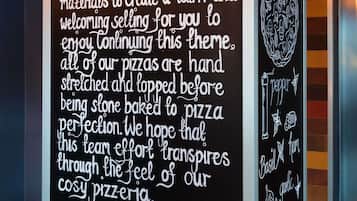 materials to create a warm and
welcoming selling for you to
enjoy. Continuing this theme,
all of our pizzas are hand
stretched and topped before
being stone baked to pizza
perfection. We hope that
this team effort transpires
through the feel of our
cosy pizzeria.
Pepper
Basil